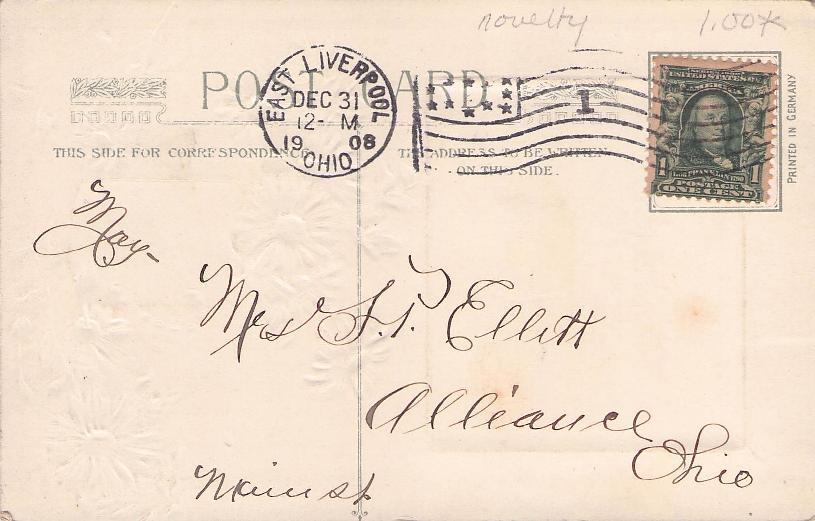 novelty 1.00
POST CARD
EAST LIVERPOOL
DEC 31
12- M
19 08
OHIO
1
UNITED STATES OF
AMERICA
1 1
POSTAGE
ONE CENT
PRINTED IN GERMANY
THIS SIDE FOR CORRESPONDENCE.
THE ADDRESS TO BE WRITTEN
ON THIS SIDE.
May-
Mrs J. P. Ellett
Alliance
Ohio
Main st